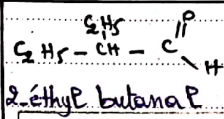 C₂H₅
O
C₂H₅ – CH – C
H
2-éthyl butanal